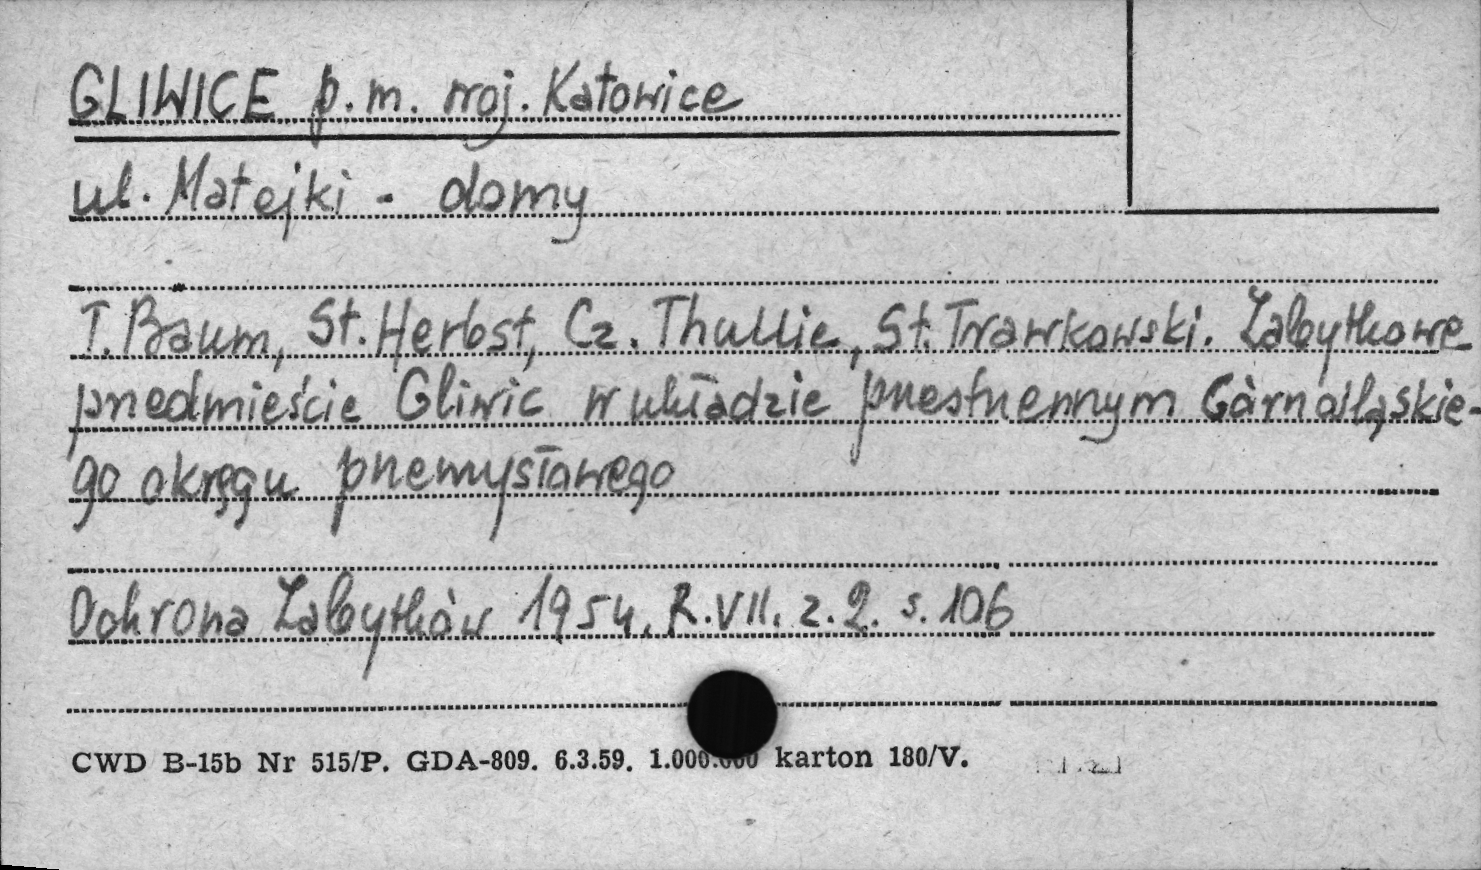 GLIWICE p.m. woj. Katowice
ul. Matejki - domy
T. Baum, St. Herbst, Cz. Thullie, St. Trawkowski. Zabytkowe
przedmieście Gliwic w układzie przestrzennym Górnośląskie-
go okręgu przemysłowego
Ochrona Zabytków 1954, R. VII. z. 2. s. 106
CWD B-15b Nr 515/P. GDA-809. 6.3.59. 1.000.000 karton 180/V.